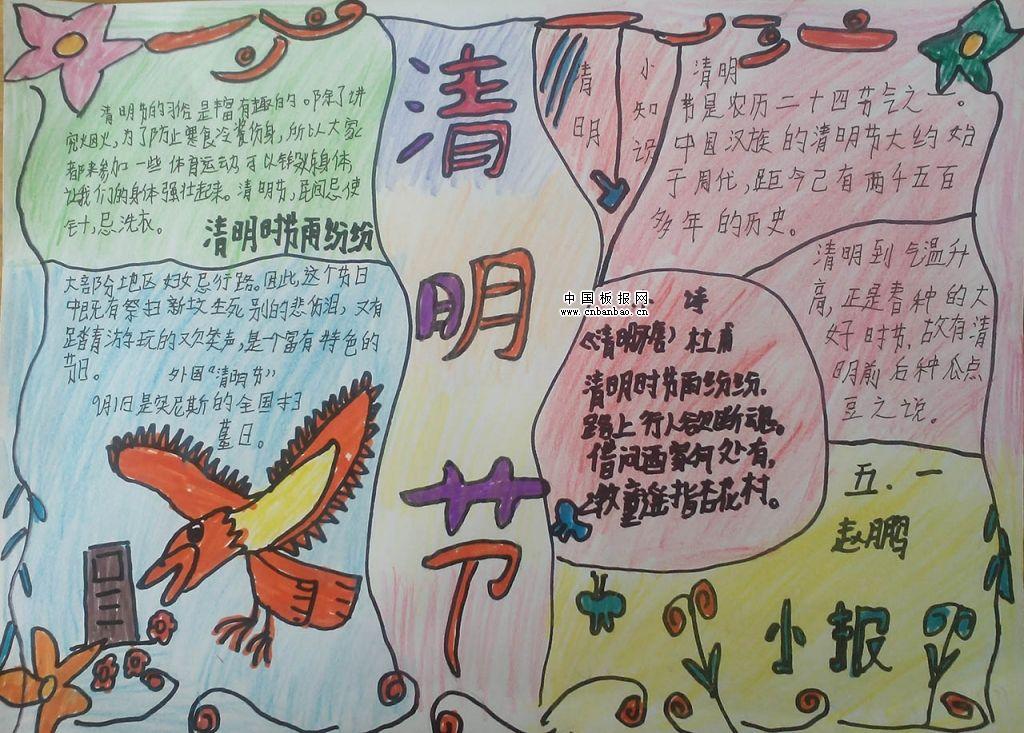 清明节
清明节的习俗是丰富有趣的。除了讲
究火,为了防止寒食冷餐伤身,所以大家
都来参加一些体育运动可以锻炼身体,
让我们的身体强壮起来。清明节,民间忌使
针,忌洗衣。
清明时节雨纷纷
大部份地区妇女忌行路。因此,这个节日
中既有祭扫新坟生死别的悲伤泪,又有
踏青游玩的欢笑声,是个富有特色的
节日。
外国“清明节”
9月1日是突尼斯的全国扫
墓日。
清明
小知识
清明
节是农历二十四节气之一。
中国汉族的清明节大约始
于周代,距今已有两千五百
多年的历史。
清明到气温升
高,正是春种的大
好时节,故有清
明前后种瓜点
豆之说。
中国板报网
www.cnbanbao.cn
诗
杜甫
清明时节雨纷纷,
路上行人欲断魂。
借问酒家何处有,
牧童遥指杏花村。
五.一
赵鹏
小报